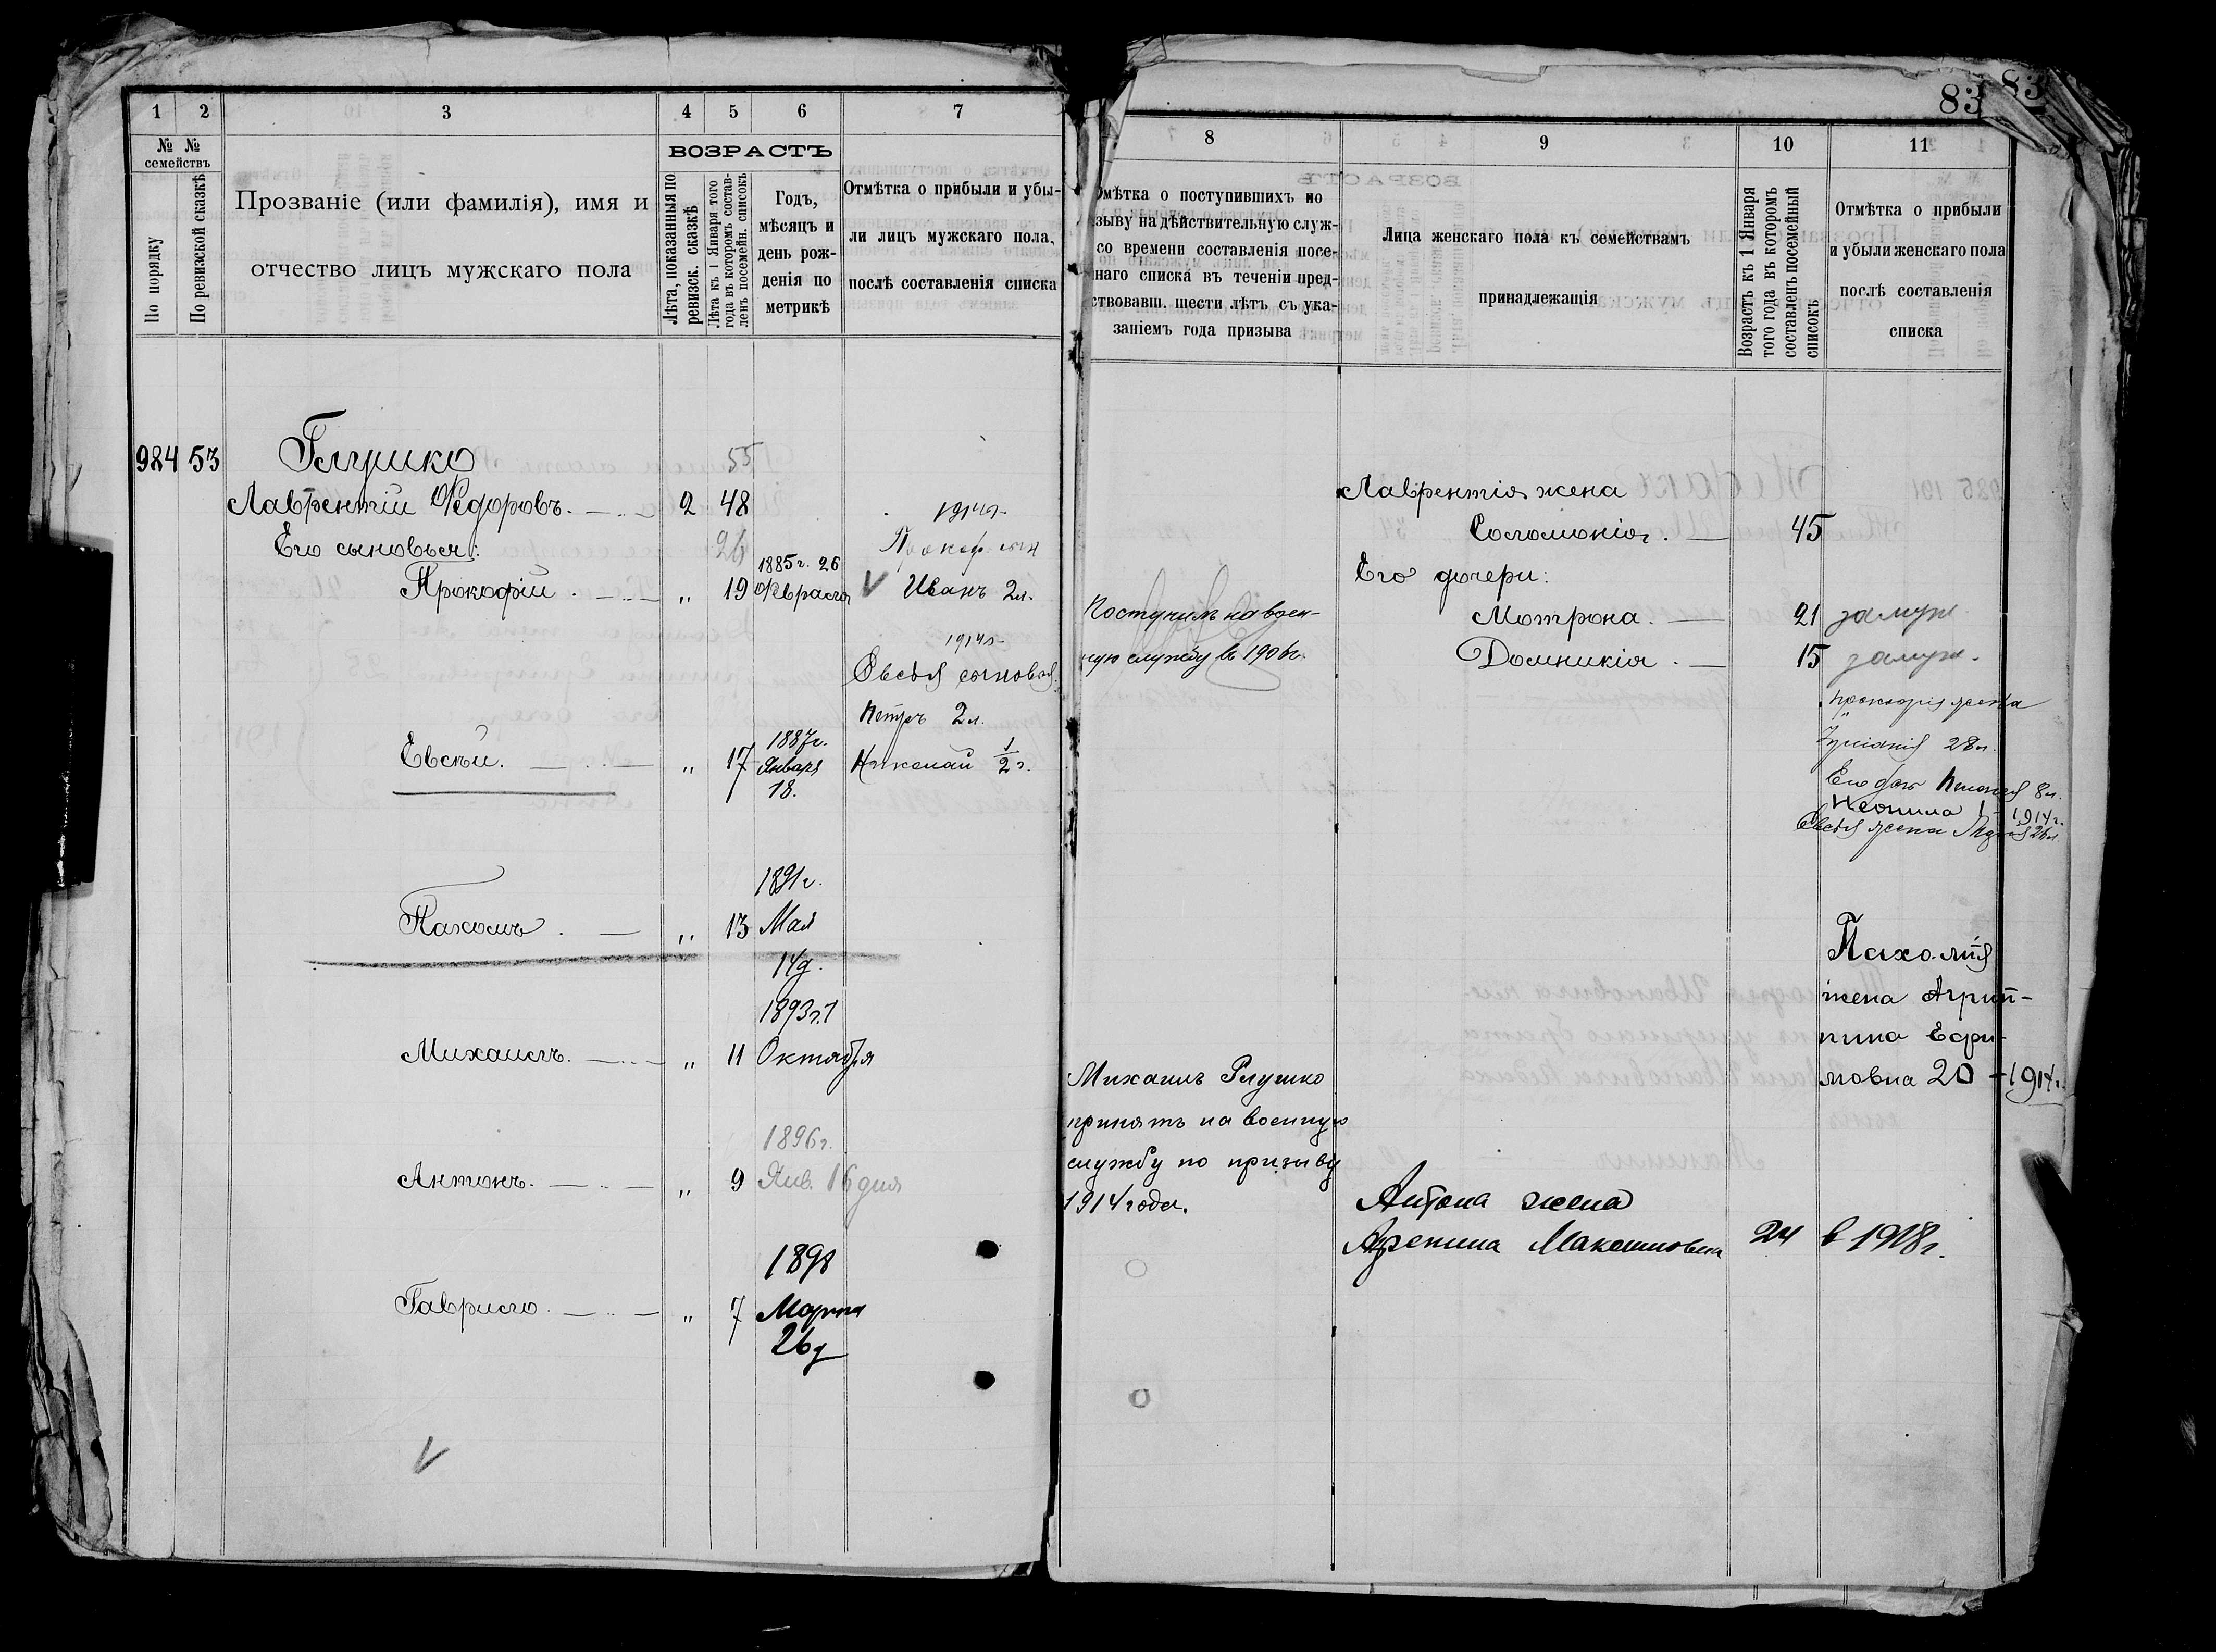 83
83
1 2 3 4 5 6 7
№ № семействъ
По порядку
По ревизской сказкѣ
Прозваніе (или фамилія), имя и
отчество лицъ мужскаго пола
ВОЗРАСТЪ
Лѣта, показанныя по
ревизск. сказкѣ
Лѣта къ 1 Января того
года въ которомъ состав-
ленъ посемейн. списокъ
Годъ,
мѣсяцъ и
день рож-
денія по
метрикѣ
Отмѣтка о прибыли и убы-
ли лицъ мужскаго пола,
послѣ составленія списка
984 53 Глушко 55
Лаврентій Ѳедоровъ. 2 48
Его сыновья: 26
1914г.
Прокоф. сын
Прокофій „ 19 1885 г. 26
Февраля
Иванъ 2л.
1914г.
Евсѣя сыновья
Петръ 2л.
Евсѣй. „ 17 1887г.
Января
18.
Николай 1/2 г.
1891г.
Пахомъ „ 13 Мая
14д.
1893г. 1
Михаилъ. „ 11 Октября
1896г.
Антонъ. „ 9 Янв. 16 дня
1898
Гаврило. „ 7 Марта
26д
8 9 10 11
Отмѣтка о поступившихъ по
зыву на дѣйствительную служ-
со времени составленія посе-
наго списка въ теченіи пред-
ствовавш. шести лѣтъ съ ука-
заніемъ года призыва
Лица женскаго пола къ семействамъ
принадлежащія
Возрастъ къ 1 Января
того года въ которомъ
составленъ посемейный
списокъ
Отмѣтка о прибыли
и убыли женскаго пола
послѣ составленія
списка
Лаврентія жена
Соломонія. 45
Его дочери:
Мотрона. 21 замуж
Домникія. 15 замуж.
Поступилъ на воен-
ную службу въ 1906г.
жена
28л.
Его доч 8л.
Неонила 1 - 1914г.
Евсѣя жена 26л
Пахомія
жена Агрип-
пина Ефи-
мовна 20 - 1914г.
Михаилъ Глушко
принятъ на военную
службу по призыву
1914 года.
Антона жена
Максимовна 24 в 1918г.